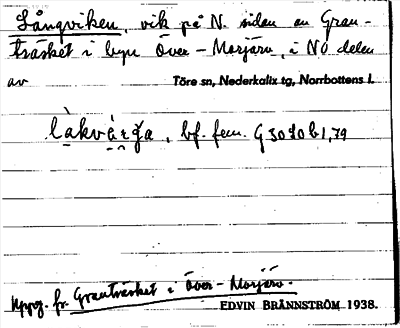 Långviken, vik på N. sidan av Gran-
träsket i byn Över-Morjärv, i NO delen
av Töre sn, Nederkalix tg, Norrbottens l.
bf. fem. G 3070 b 1,79
Uppg. fr. Granträsket i Över-Morjärv.
EDVIN BRÄNNSTRÖM 1938.